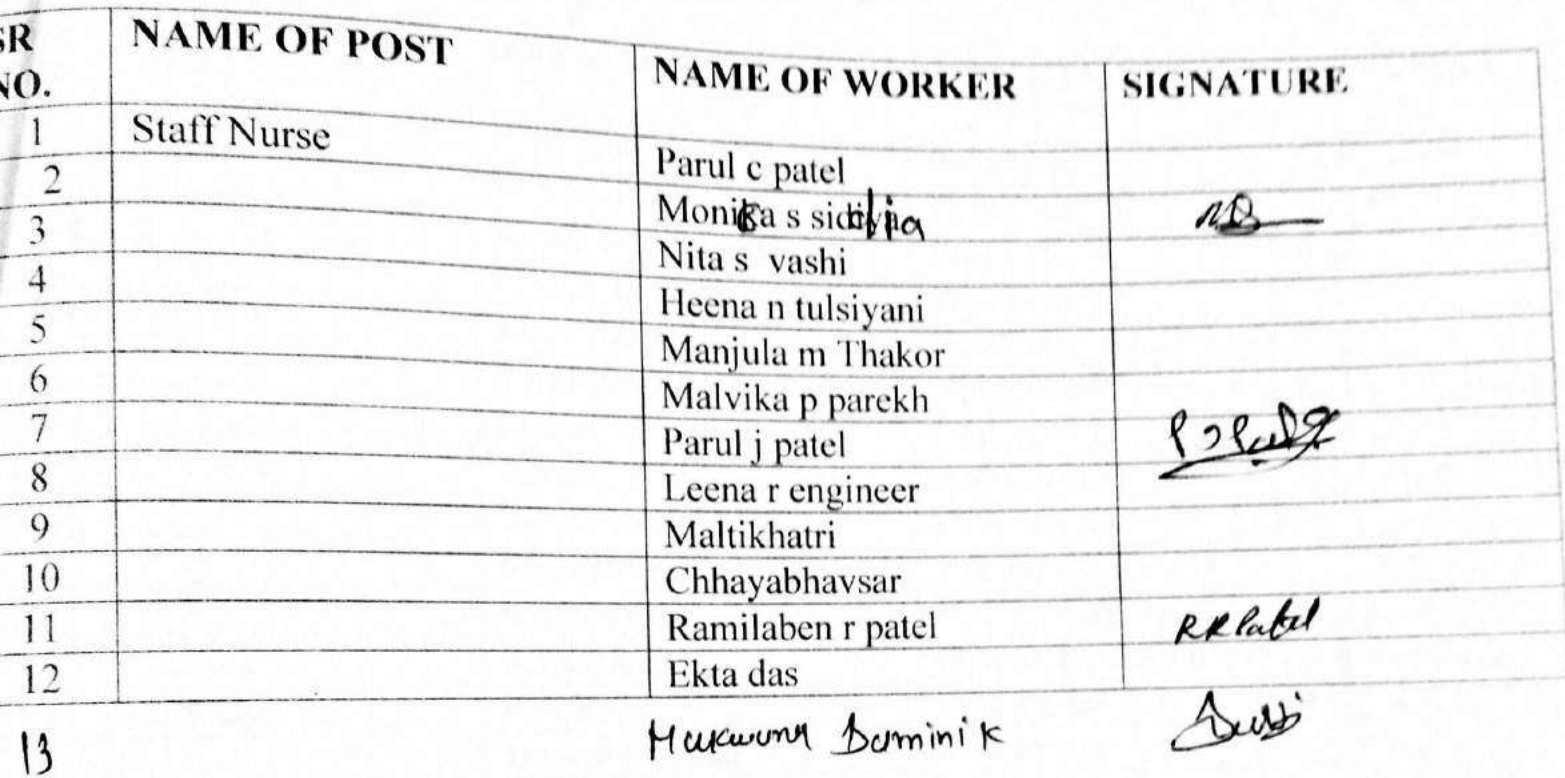 SR NO. NAME OF POST NAME OF WORKER SIGNATURE
1 Staff Nurse Parul c patel
2 Monika s
3 Nita s vashi
4 Heena n tulsiyani
5 Manjula m Thakor
6 Malvika p parekh
7 Parul j patel P J Patel
8 Leena r engineer
9 Maltikhatri
10 Chhayabhavsar
11 Ramilaben r patel RRPatel
12 Ekta das
13 Dominik